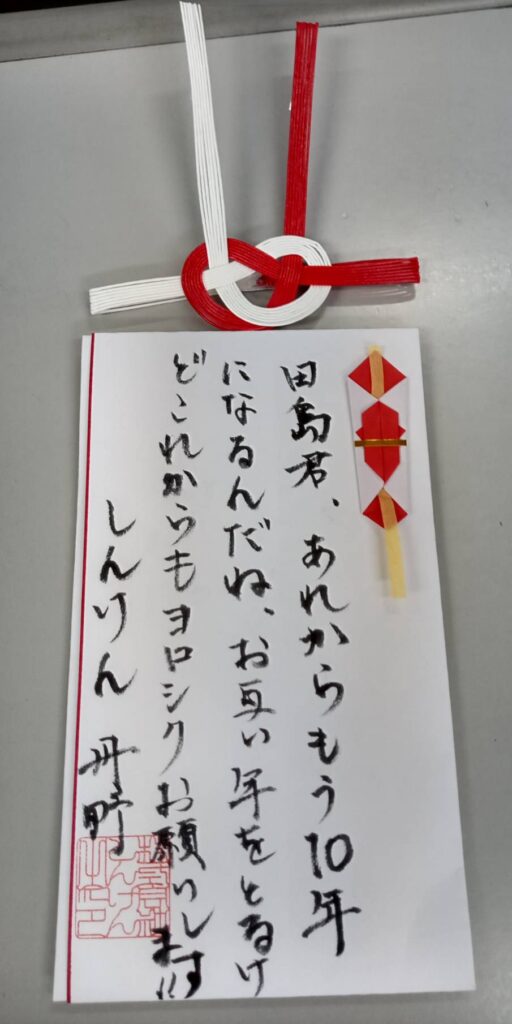 田島君、あれからもう10年
になるんだね、お互い年をとるけ
どこれからもヨロシクお願いします!!
しんりん 丹野